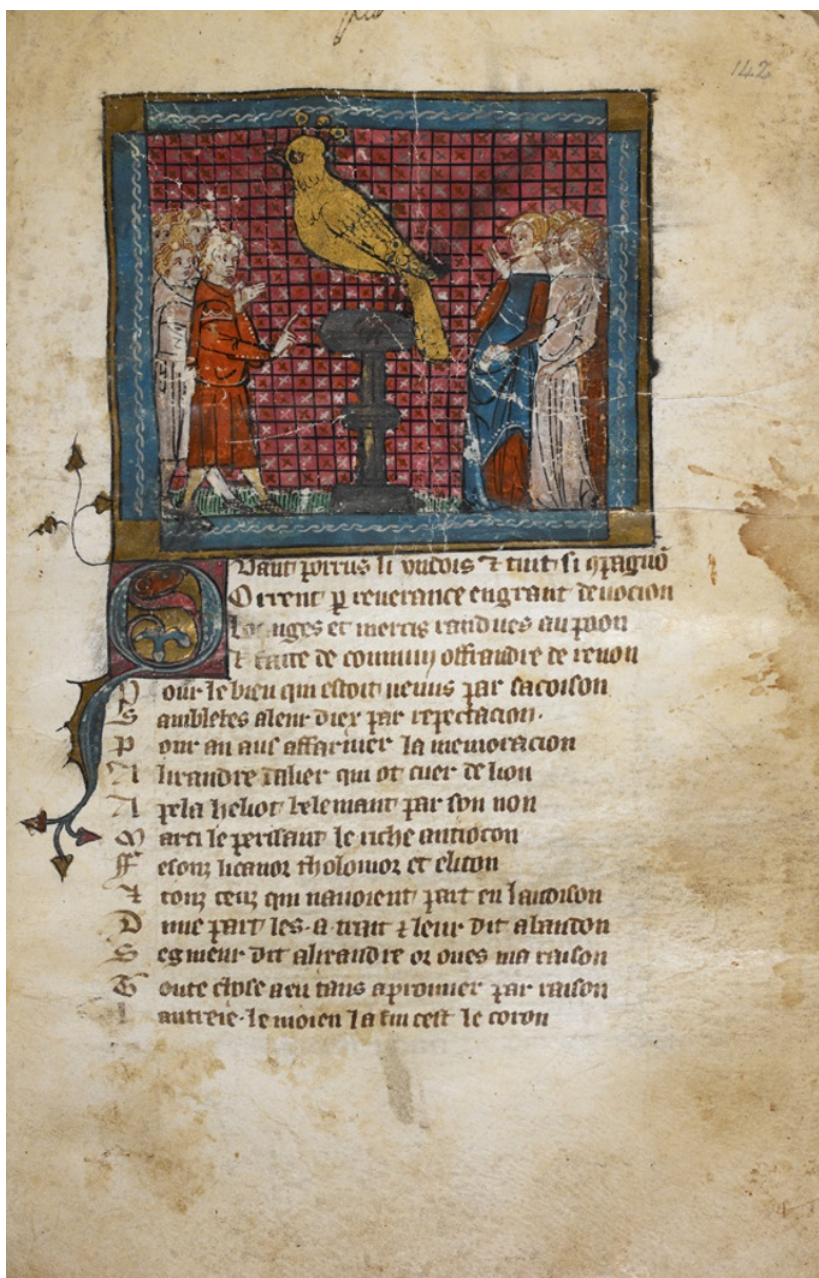 142
Quant porrus li yndois ⁊ tuit si ꝯpagnõ
O irrent ꝑ reuerance en grant deuocion
Lo uges et mercis randues au paon
E faite de commun offrandre de renon
P our le bien qui estoit venus par sacoison
S ambletes a leur diex par
P our an aus affarmer la memoracion
A lixandre dalier qui ot cuer de lion
A pela heliot belemant par son non
M arci le persant le riche antiocon
F esonz licanor tholomor et eliton
⁊ touz ceuz qui nauoient part en lauoison
D une part les a trait ⁊ leur dit abandon
S egnieur dit alixandre or oues ma raison
T oute chose a eu tans a prouuer par raison
L autreie le moien la fin cest le coron